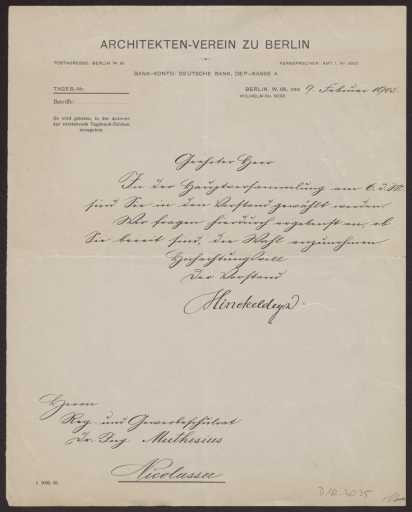 ARCHITEKTEN-VEREIN ZU BERLIN
POSTADRESSE: BERLIN W. 66.
FERNSPRECHER: AMT I, Nr.
BANK-KONTO: DEUTSCHE BANK, DEP.-KASSE A.
TAGEB.-Nr.
BERLIN, W. 66, DEN 9. Februar
WILHELM-Str. 92/93.
Betrifft:
Es wird gebeten, in der Antwort
das vorstehende Tagebuch-Zeichen
anzugeben.
Geehrter Herr
In der Hauptversammlung am 6. d. M.
sind Sie in den Vorstand gewählt worden.
Wir fragen hierdurch ergebenst an, ob
Sie bereit sind, die Wahl anzunehmen
Hochachtungsvoll
Der Vorstand
Hinckeldeyn
Herrn
Reg. und Gewerbeschulrat
Dr. Ing. Muthesius
Nicolassee